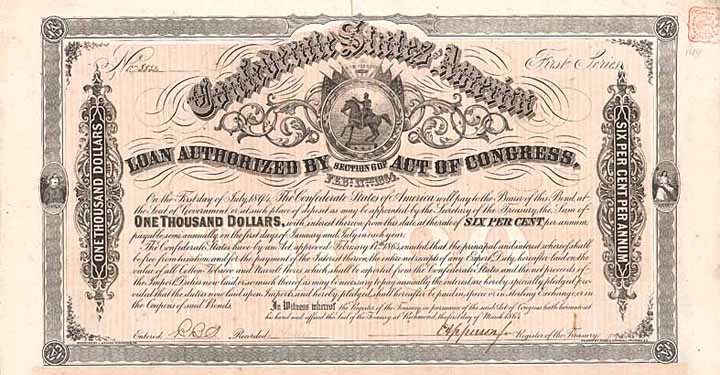 No
First Series
Confederate States of America
LOAN AUTHORIZED BY SECTION 6 OF ACT OF CONGRESS,
FEBY. 17TH 1864.
ONE THOUSAND DOLLARS
SIX PER CENT PER ANNUM
On the First day of July, 1894, The Confederate States of America will pay to the Bearer of this Bond, at
the Seat of Government or at such place of deposit as may be appointed by the Secretary of the Treasury, the Sum of
ONE THOUSAND DOLLARS, with interest thereon from this date at the rate of SIX PER CENT per annum,
payable semi annually on the first days of January and July in each year.
The Confederate States have by an Act approved February 17th 1864, enacted that the principal and interest whereof shall
be free from taxation, and for the payment of the Interest thereon, the entire net receipts of any Export Duty hereafter laid on the
value of all Cotton Tobacco and Naval Stores which shall be exported from the Confederate States and the net proceeds of
the Import Duties now laid, or so much thereof as may be necessary to pay annually the interest are hereby specially pledged, pro
vided that the duties now laid upon Imports and hereby pledged, shall hereafter be paid in specie or in sterling Exchange or in
the Coupons of said Bonds.
In Witness whereof the Register of the Treasury in pursuance of the said Act of Congress hath hereunto set
his hand and affixed the Seal of the Treasury at Richmond, the first day of March 1864
Entered Recorded Apperson Register of the Treasury.